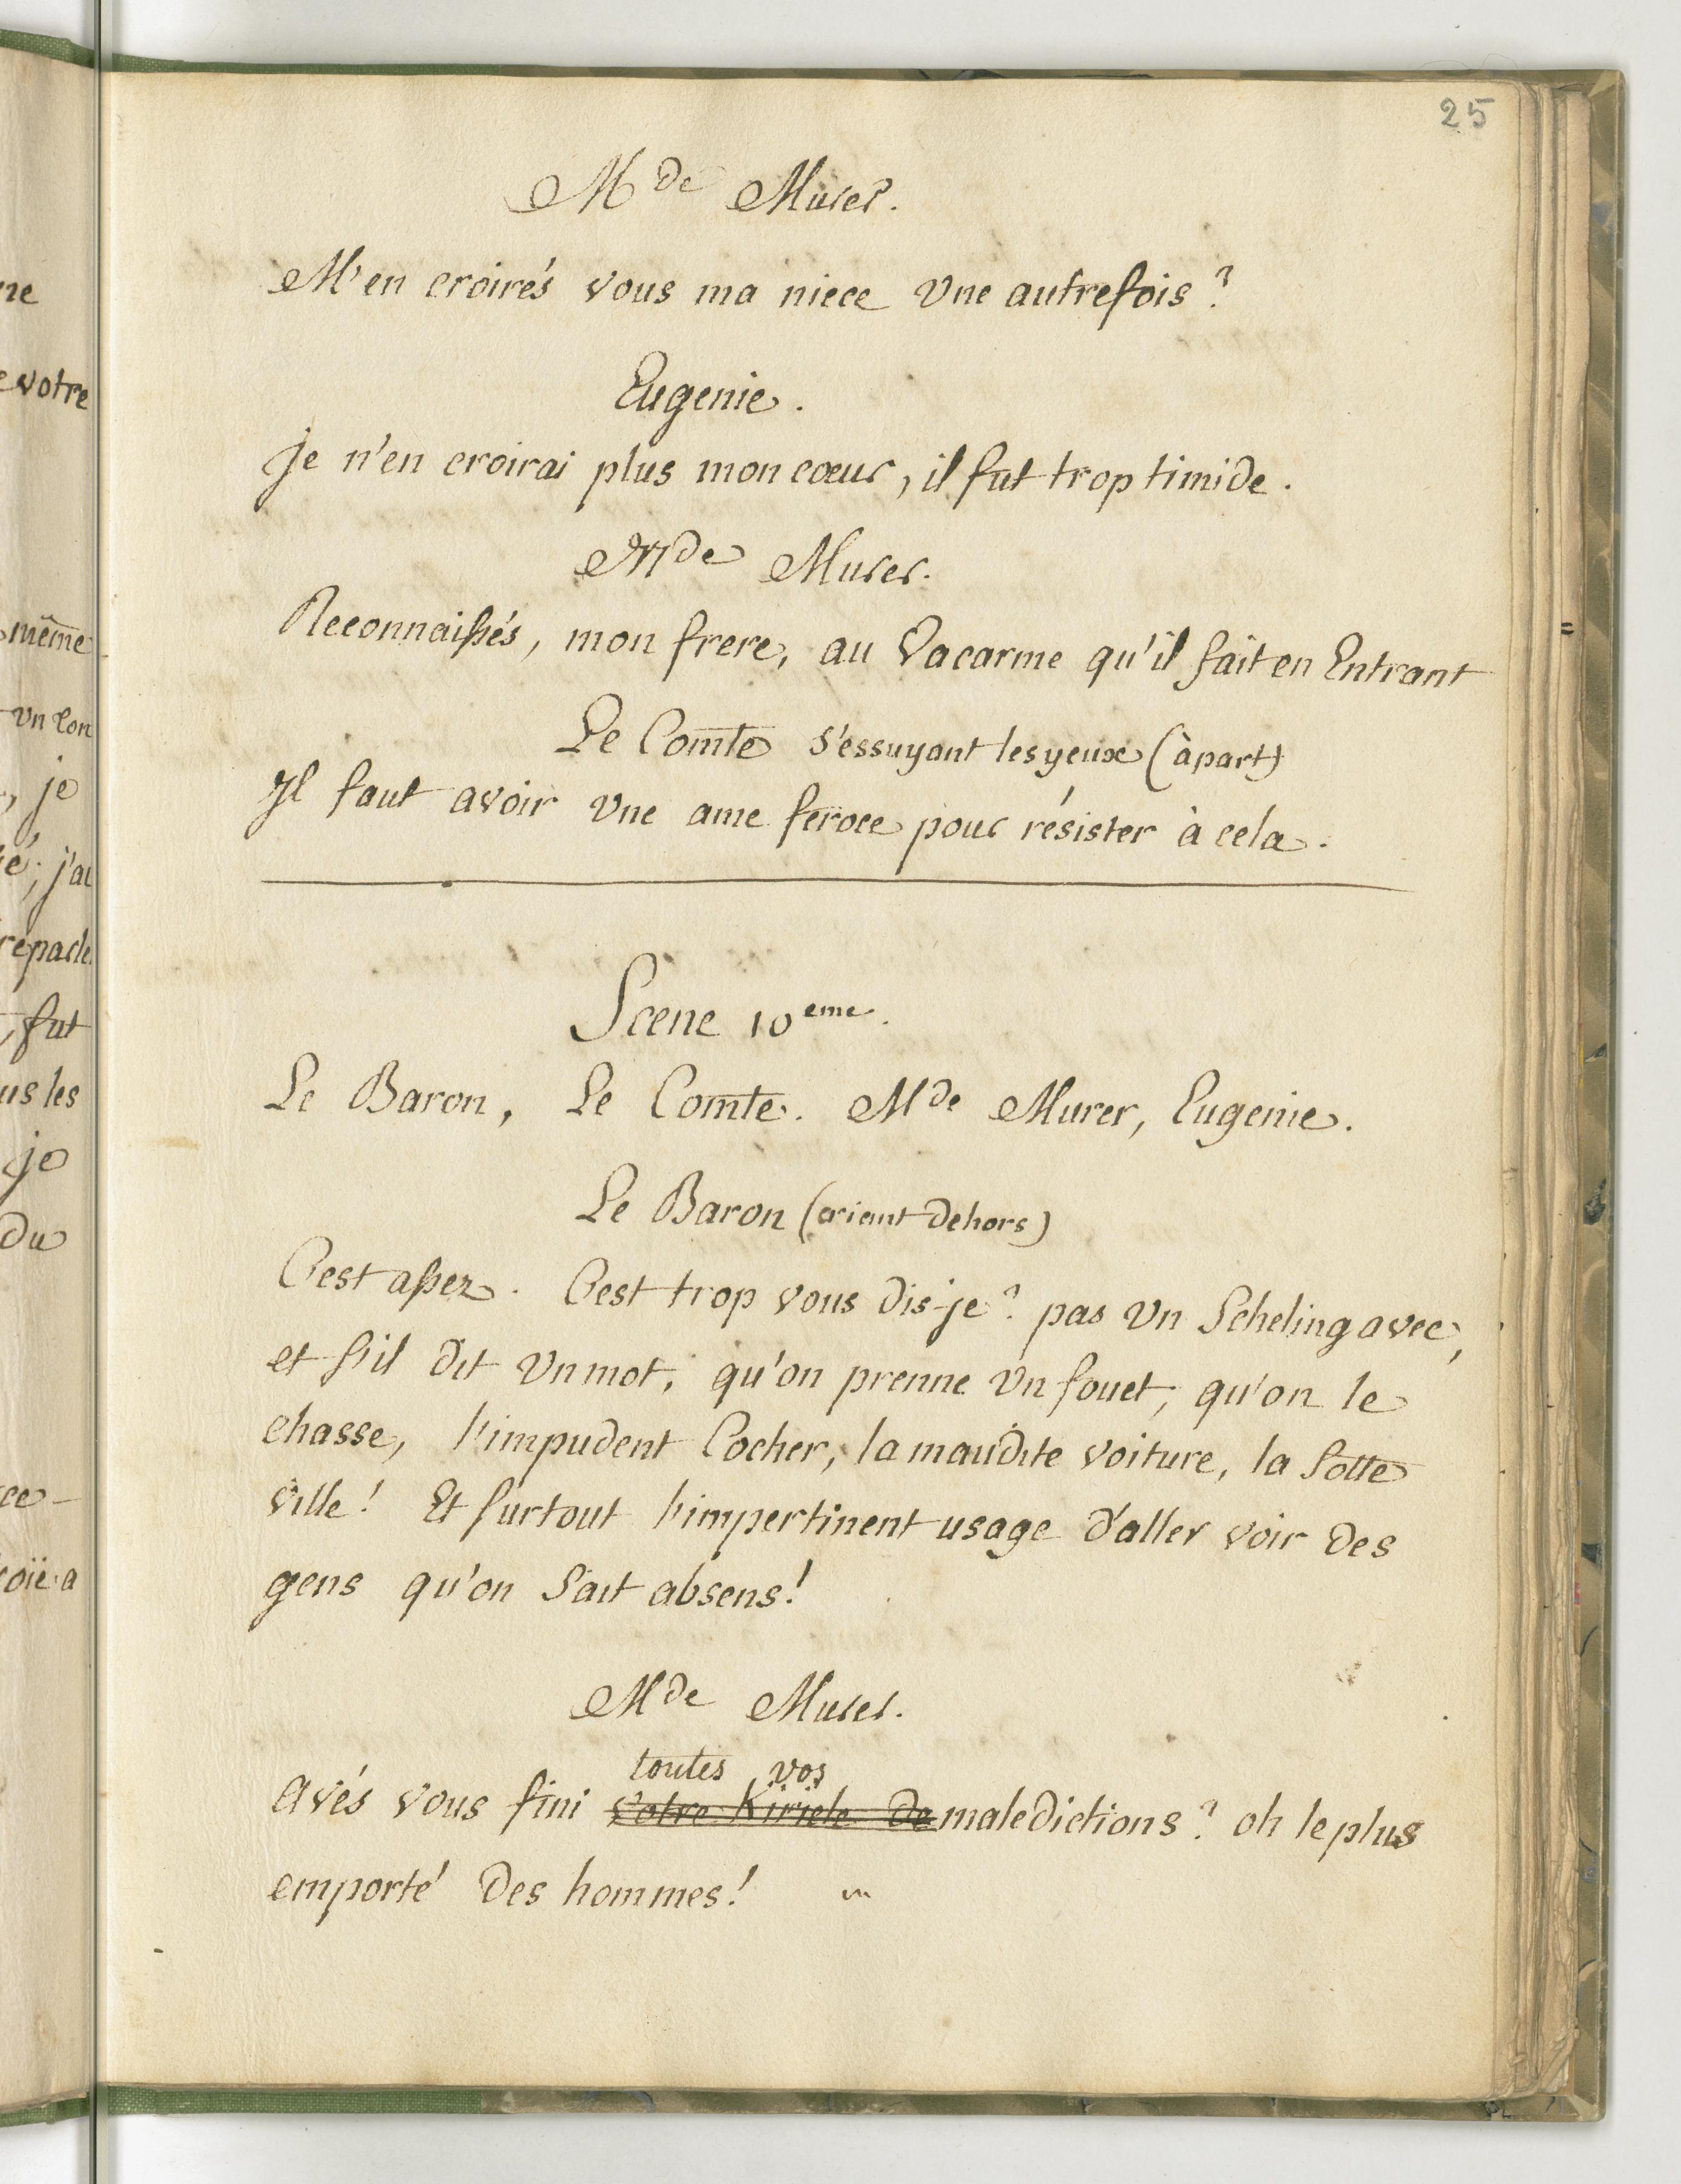 25
Mde Murer.
M'en croirés vous ma niece une autrefois?
Eugenie.
je n'en croirai plus mon cœur, il fut trop timide.
Mde Murer.
Reconnaissés, mon frere, au Vacarme qu'il fait en Entrant
Le Comte s'essuyant les yeux (à part)
Il faut avoir une ame feroce pour résister à cela.
Scene 10eme.
Le Baron, Le Comte. Mde Murer, Eugenie.
Le Baron (criant dehors)
C'est assez. C'est trop vous dis-je? pas un Scheling avec,
et s'il dit un mot, qu'on prenne un fouet, qu'on le
chasse, l'impudent Cocher, la maudite voiture, la Sotte
ville! Et surtout l'impertinent usage d'aller voir des
gens qu'on Sait absens!
Mde Murer.
toutes vos
Avés vous fini votre Kiriele de maledictions? oh le plus
emporté des hommes!
ne
e votre
même
un con
, je
ié; j'ai
, fut
us les
je
du
ce